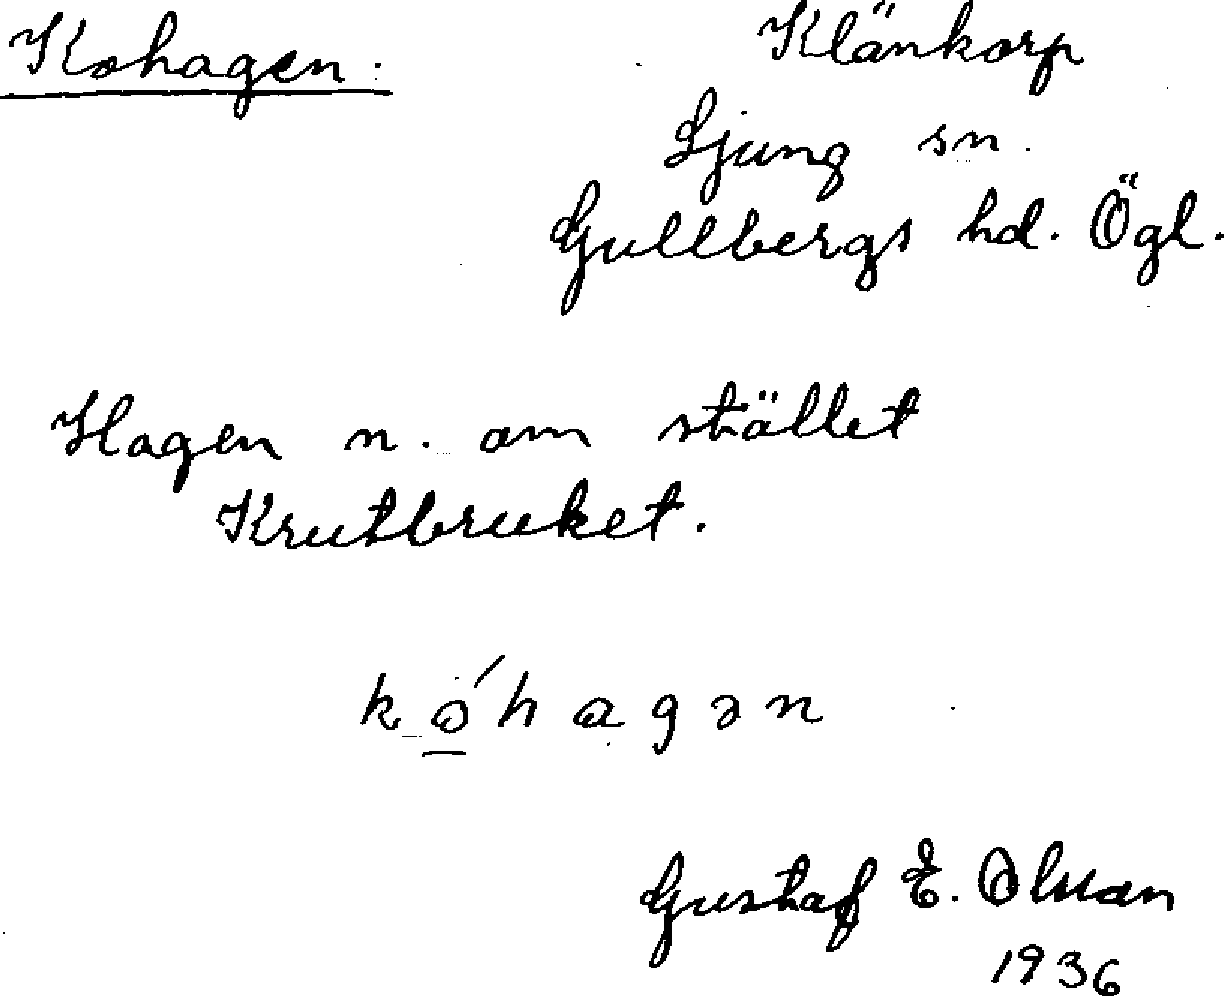 Kohagen.
Klänkorp
Ljung sn.
Gullbergs hd. Ögl.
Hagen n. om stället
Krutbruket.
ko̲´hagən
Gustaf E. Olsson
1936